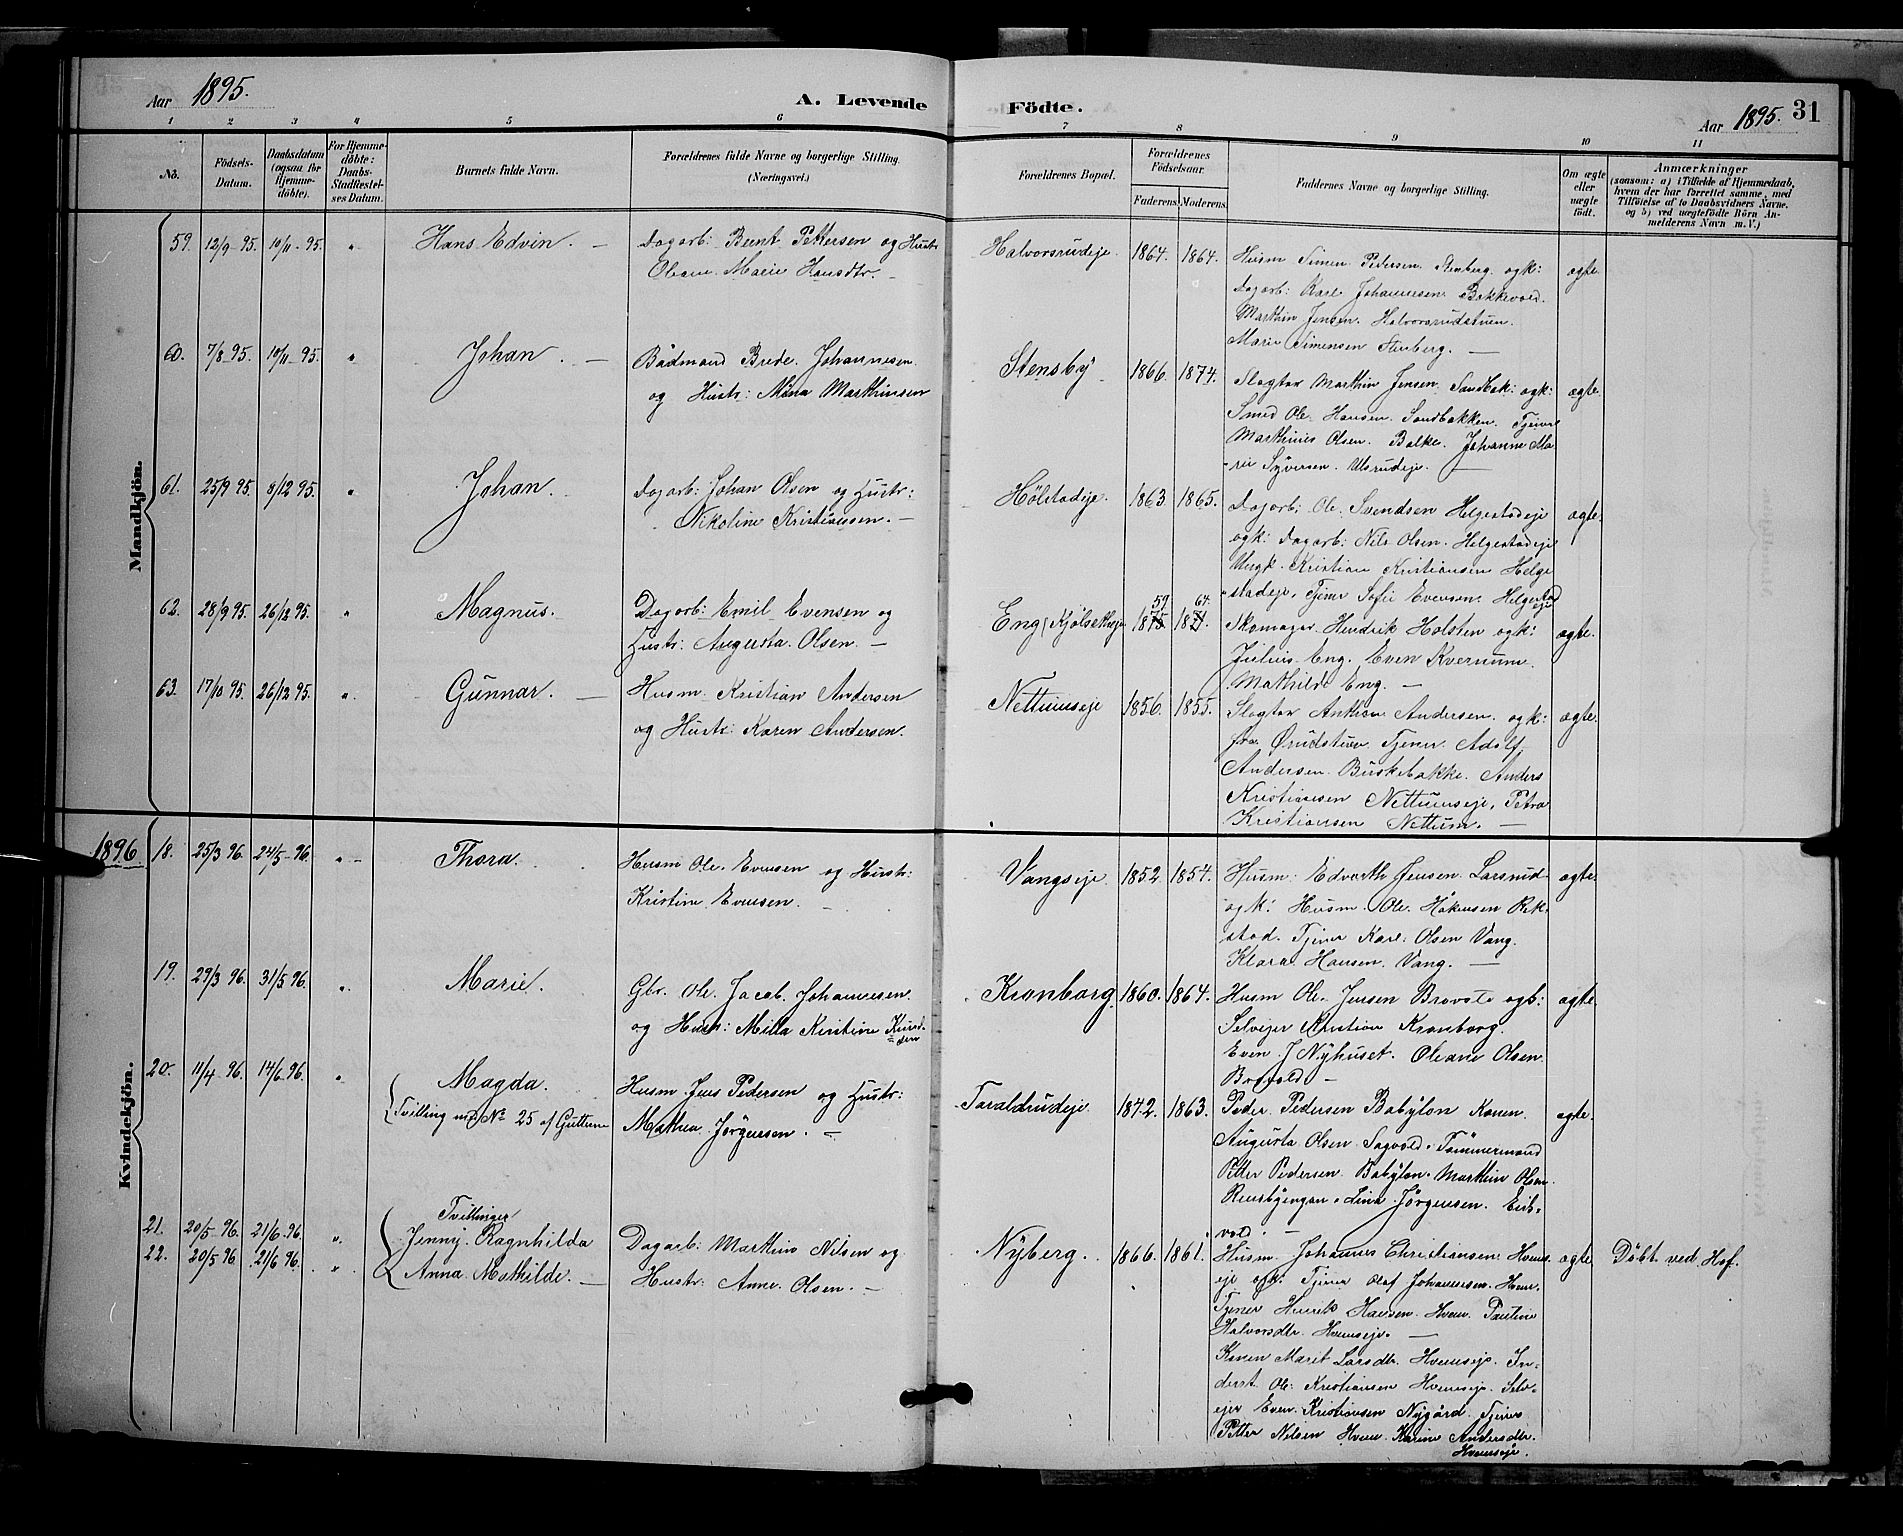 Aar 1895. A. Levende Födte. Aar 1895. 31
1 2 3 4 5 6 7 8 9 10 11
No. Födsels-Datum. Daabsdatum (ogsaa for Hjemmedöbte). For Hjemmedöbte: Daabs-Stadfæstelses Datum. Barnets fulde Navn. Forældrenes fulde Navne og borgerlige Stilling. (Næringsvei.) Forældrenes Bopæl. Forældrenes Födselsaar. Faderens. Moderens. Faddernes Navne og borgerlige Stilling. Om ægte eller uægte födt. Anmærkninger (saasom: a) i Tilfælde af Hjemmedaab, hvem der har forrettet samme, med Tilföielse af to Daabsvidners Navne, og b) ved uægtefödte Börn Anmelderens Navn m. V.)
Mandkjön.
59. 12/9 95. 10/11 95. " Hans Edvin. Dagarb: Bernt Pettersen og Hustr Halvorsrudeje 1864. 1864. Husm Simen Pedersen Stenberg ogk: ægte
Oleane Marie Hansdtr.
Dagarb: Karl Johannesen Bakkevold.
Marthin Jensen Halvorsrudstuen.
Marie Simensen Stenberg.
60. 7/8 95. 10/11 95. " Johan. Bådmand Brede Johannesen Stensby 1866. 1874. Slagter Marthin Jensen Sandbak: ogk: ægte
og Hustr: Mina Marthinsen
Smed Ole Hansen Sandbakken. Tjener
Marthines Olsen. Balke. Johanne Ma
rie Syversen. Ulsrudeje.
61. 25/9 95. 8/12 95. " Johan. Dagarb: Johan Olsen og Hustr: Hölstadeje. 1863. 1865. Dagarb: Ole Svendsen Helgestadeje ægte.
Nikoline Kristiansen.
ogk: Dagarb: Nils Olsen. Helgestadeje
Ungk. Kristian Kristiansen Helge
stadeje, Tjener Sofie Evensen. Helgestad
eje
62. 28/9 95. 26/12 95. " Magnus. Dagarb: Emil Evensen og Eng (Kjölsetheje 1875 59 1871 64. Skomager Hendrik Holsten ogk: ægte.
Hustr: Augusta Olsen.
Julius Eng. Even Kvernum.
Mathilde Eng.
63. 17/10 95. 26/12 95. " Gunnar. Husm. Kristian Andersen Nettumseje 1856. 1855. Slagter Anthon Andersen. ogk: ægte.
og Hustr: Karen Andersen.
Tjener Adolf
Andersen. Buskebakke. Anders
Kristiansen Nettumseje, Petra
Kristiansen Nettum.
1896
Kvindekjön.
18. 25/3 96. 24/5 96. " Thora. Husm Ole Evensen og Hustr: Vangseje 1852 1854. Husm: Edvarth Jensen Larsrud ægte.
Kristine Evensen.
ogk: Husm. Ole Håkensen Rik
stad. Tjener Karl Olsen Vang.
Klara Hansen. Vang.
19. 29/3 96. 31/5 96. " Marie. Gbr. Ole Jacob Johannesen Kronborg 1860. 1864. Husm Ole Jensen Brovold ogk: ægte
og Hustr: Milla Kristine
Selvejer Kristian Kronborg.
Even J Nyhuset. Oleane Olsen
Brovold
20. 11/4 96. 14/6 96. " Magda. Husm Jens Pedersen og Hustr: Taraldrudeje 1842. 1863. Peder Pedersen Babylon Konen ægte.
(Tvilling med No 25 af Guttene Mathea Jörgensen.
Augusta Olsen Sagvold. Tömmermand
Petter Pedersen. Babylon. Marthin Olsen
Rensbyengen. Lina Jörgensen. Eids
vold.
Tvillinger
21. 20/5 96. 21/6 96. " Jenny Ragnhilda Dagarb: Marthin Nilsen og Nyberg. 1866. 1861. Husm Johannes Christiansen Hvems ægte Döbt ved Hof.
22. 20/5 96. 21/6 96. " Anna Mathilde. Hustr: Anne Olsen.
eje ogk: Tjener Olaf Johannesen. Hvem.
Tjener Henrik Hansen. Hvem. Pauline
Halvorsdtr. Hvemseje.
Konen Marit Larsdtr. Hvemseje. In
derst Ole Kristiansen Hvemseje. Selv
ejer Even Kristiansen Nygård. Tjener
Petter Nilsen Hvem. Karine Andersdtr.
Hvemseje.